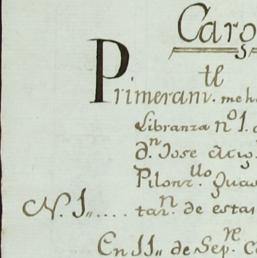 Cargo
Primeram.te me h
Libranza n.o 1.
d.n Jose
Pilonz.llo Qua
N. 1,,.... tan.n de estas
En 11,, de Sep.re C